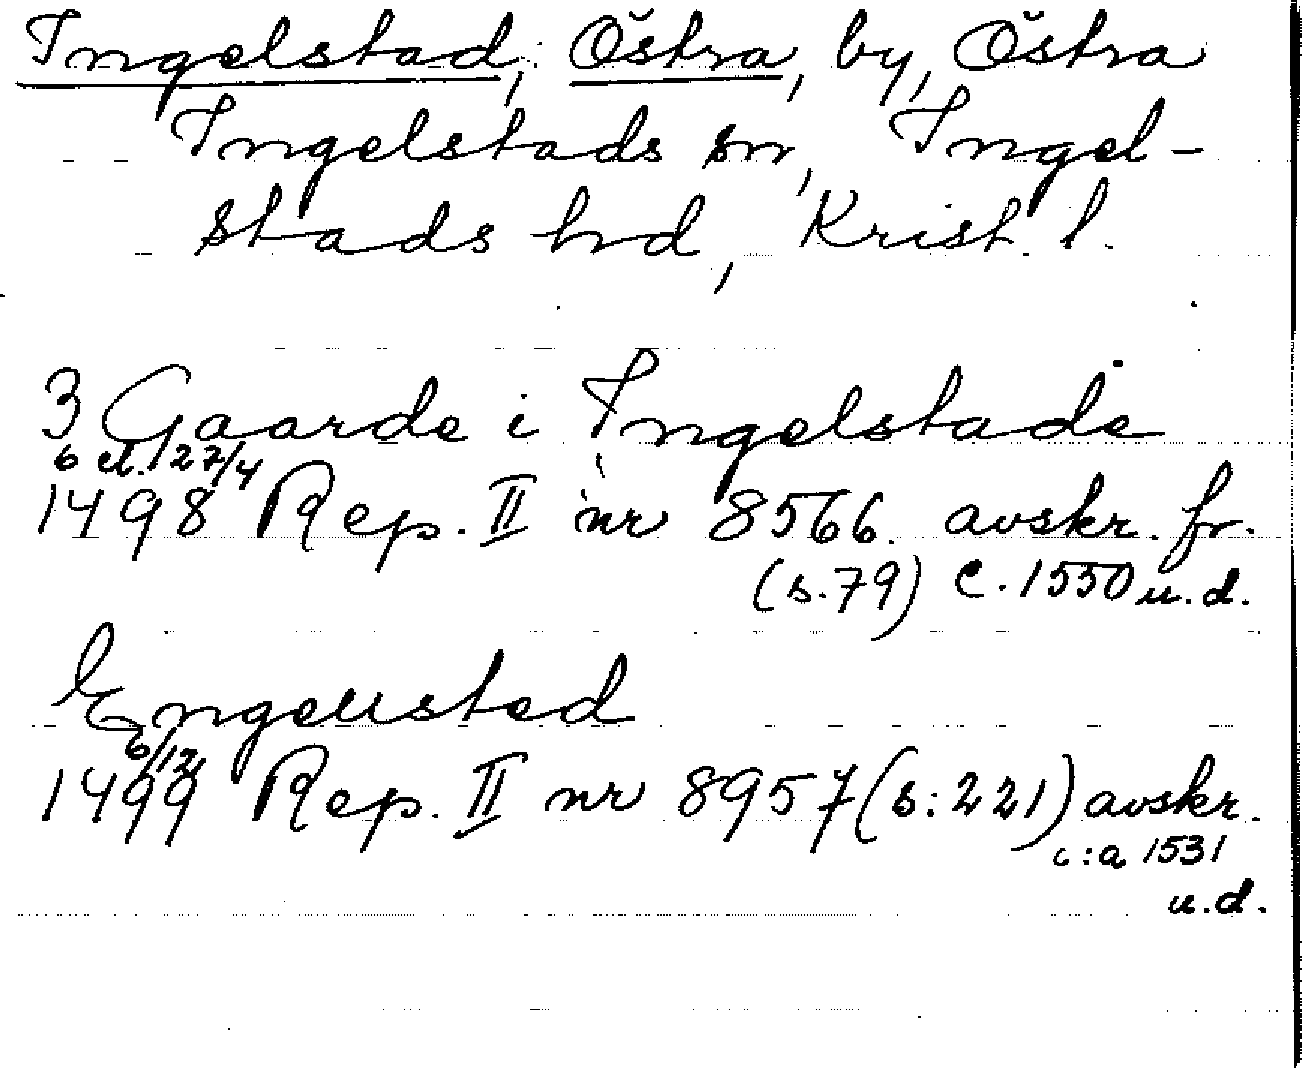 Ingelstad, Östra, by, Östra
Ingelstads sn, Ingel-
stads hd, Krist. l.
3 Gaarde i Ingelstade
6 el. 27/4
1498 Rep. II nr 8566. avskr. fr.
(s. 79) c. 1550 u. d.
Engelstad
6/12
1499 Rep. II nr 8957 (s: 221) avskr.
c:a 1531
u. d.